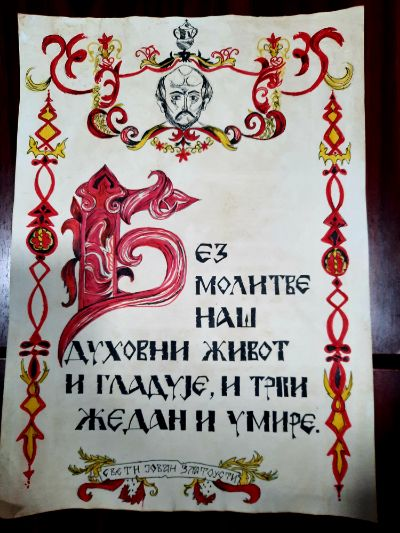 Без
молитве
наш
духовни живот
и гладује, и трпи
жедан и умире.
свети јован златоусти